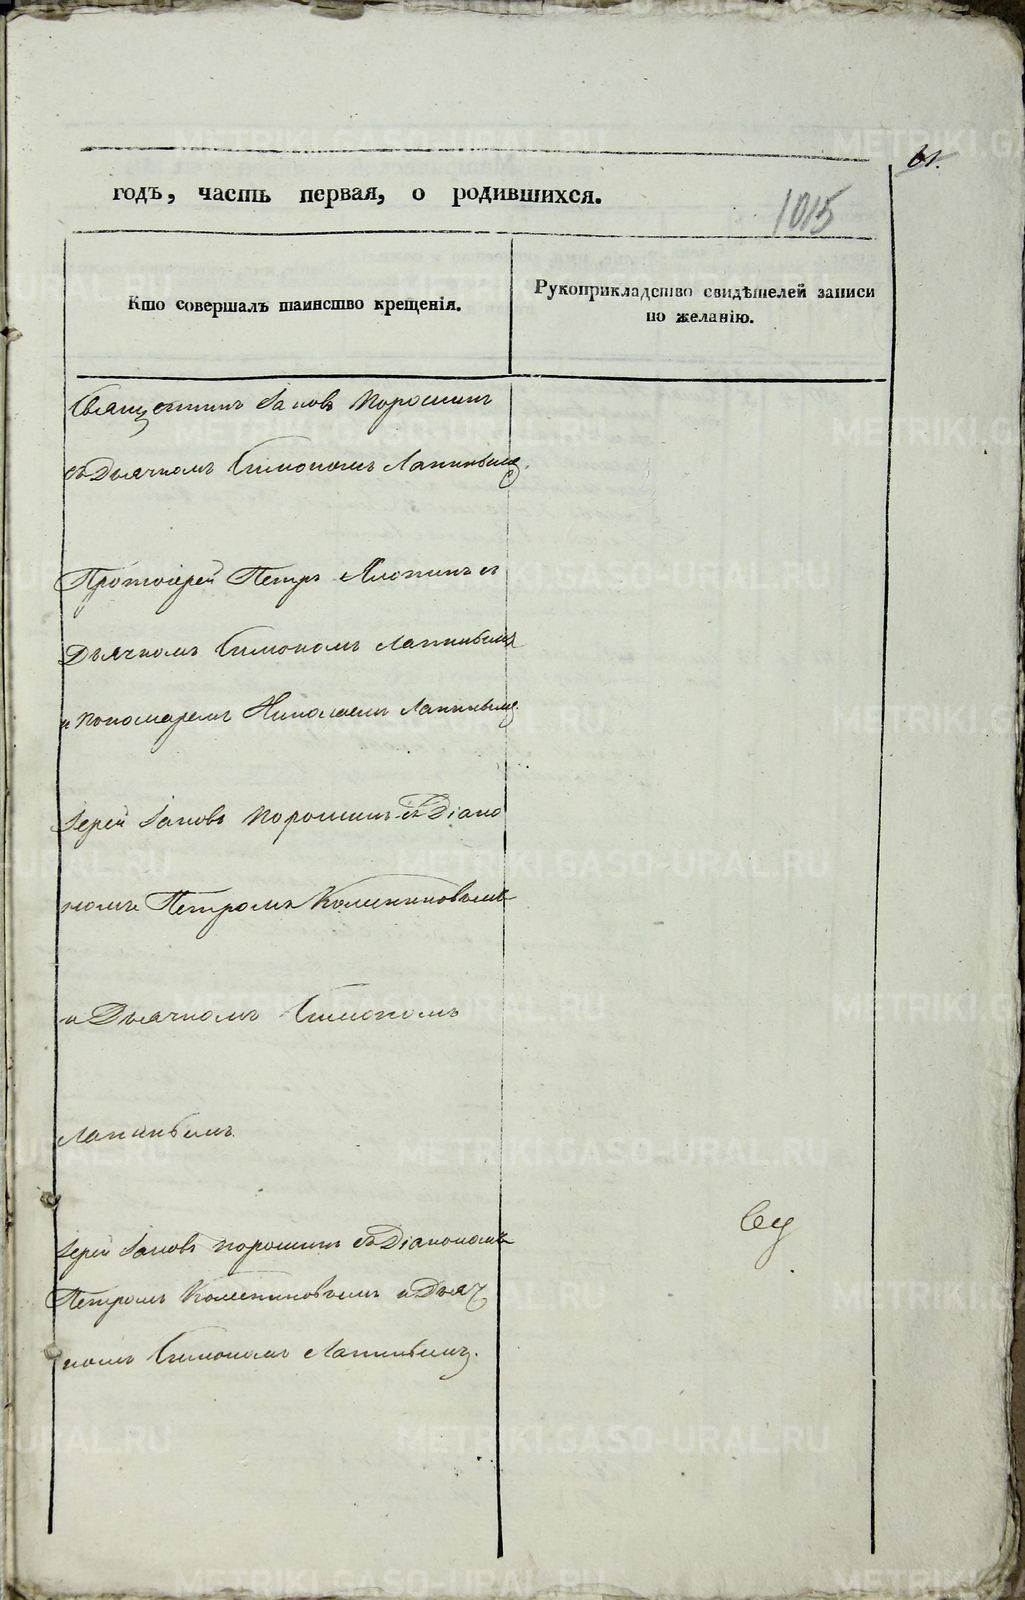 61.
годъ, часть первая, о родившихся.
1015
Кто совершалъ таинство крещенія.
Рукоприкладство свидѣтелей записи
по желанію.
Священникъ Іаковъ Порошинъ
съ Дьячкомъ Симономъ Лапинымъ.
Протоіерей Петръ съ
Дьячкомъ Симономъ Лапинымъ
и Пономаремъ Николаемъ Лапинымъ.
Іерей Іаковъ Порошинъ съ Діако
номъ Петромъ
и Дьячкомъ Симономъ
Лапинымъ.
Іерей Іаковъ Порошинъ съ Діакономъ
Петромъ и Дьяч
комъ Симономъ Лапинымъ.
METRIKI.GASO-URAL.RU